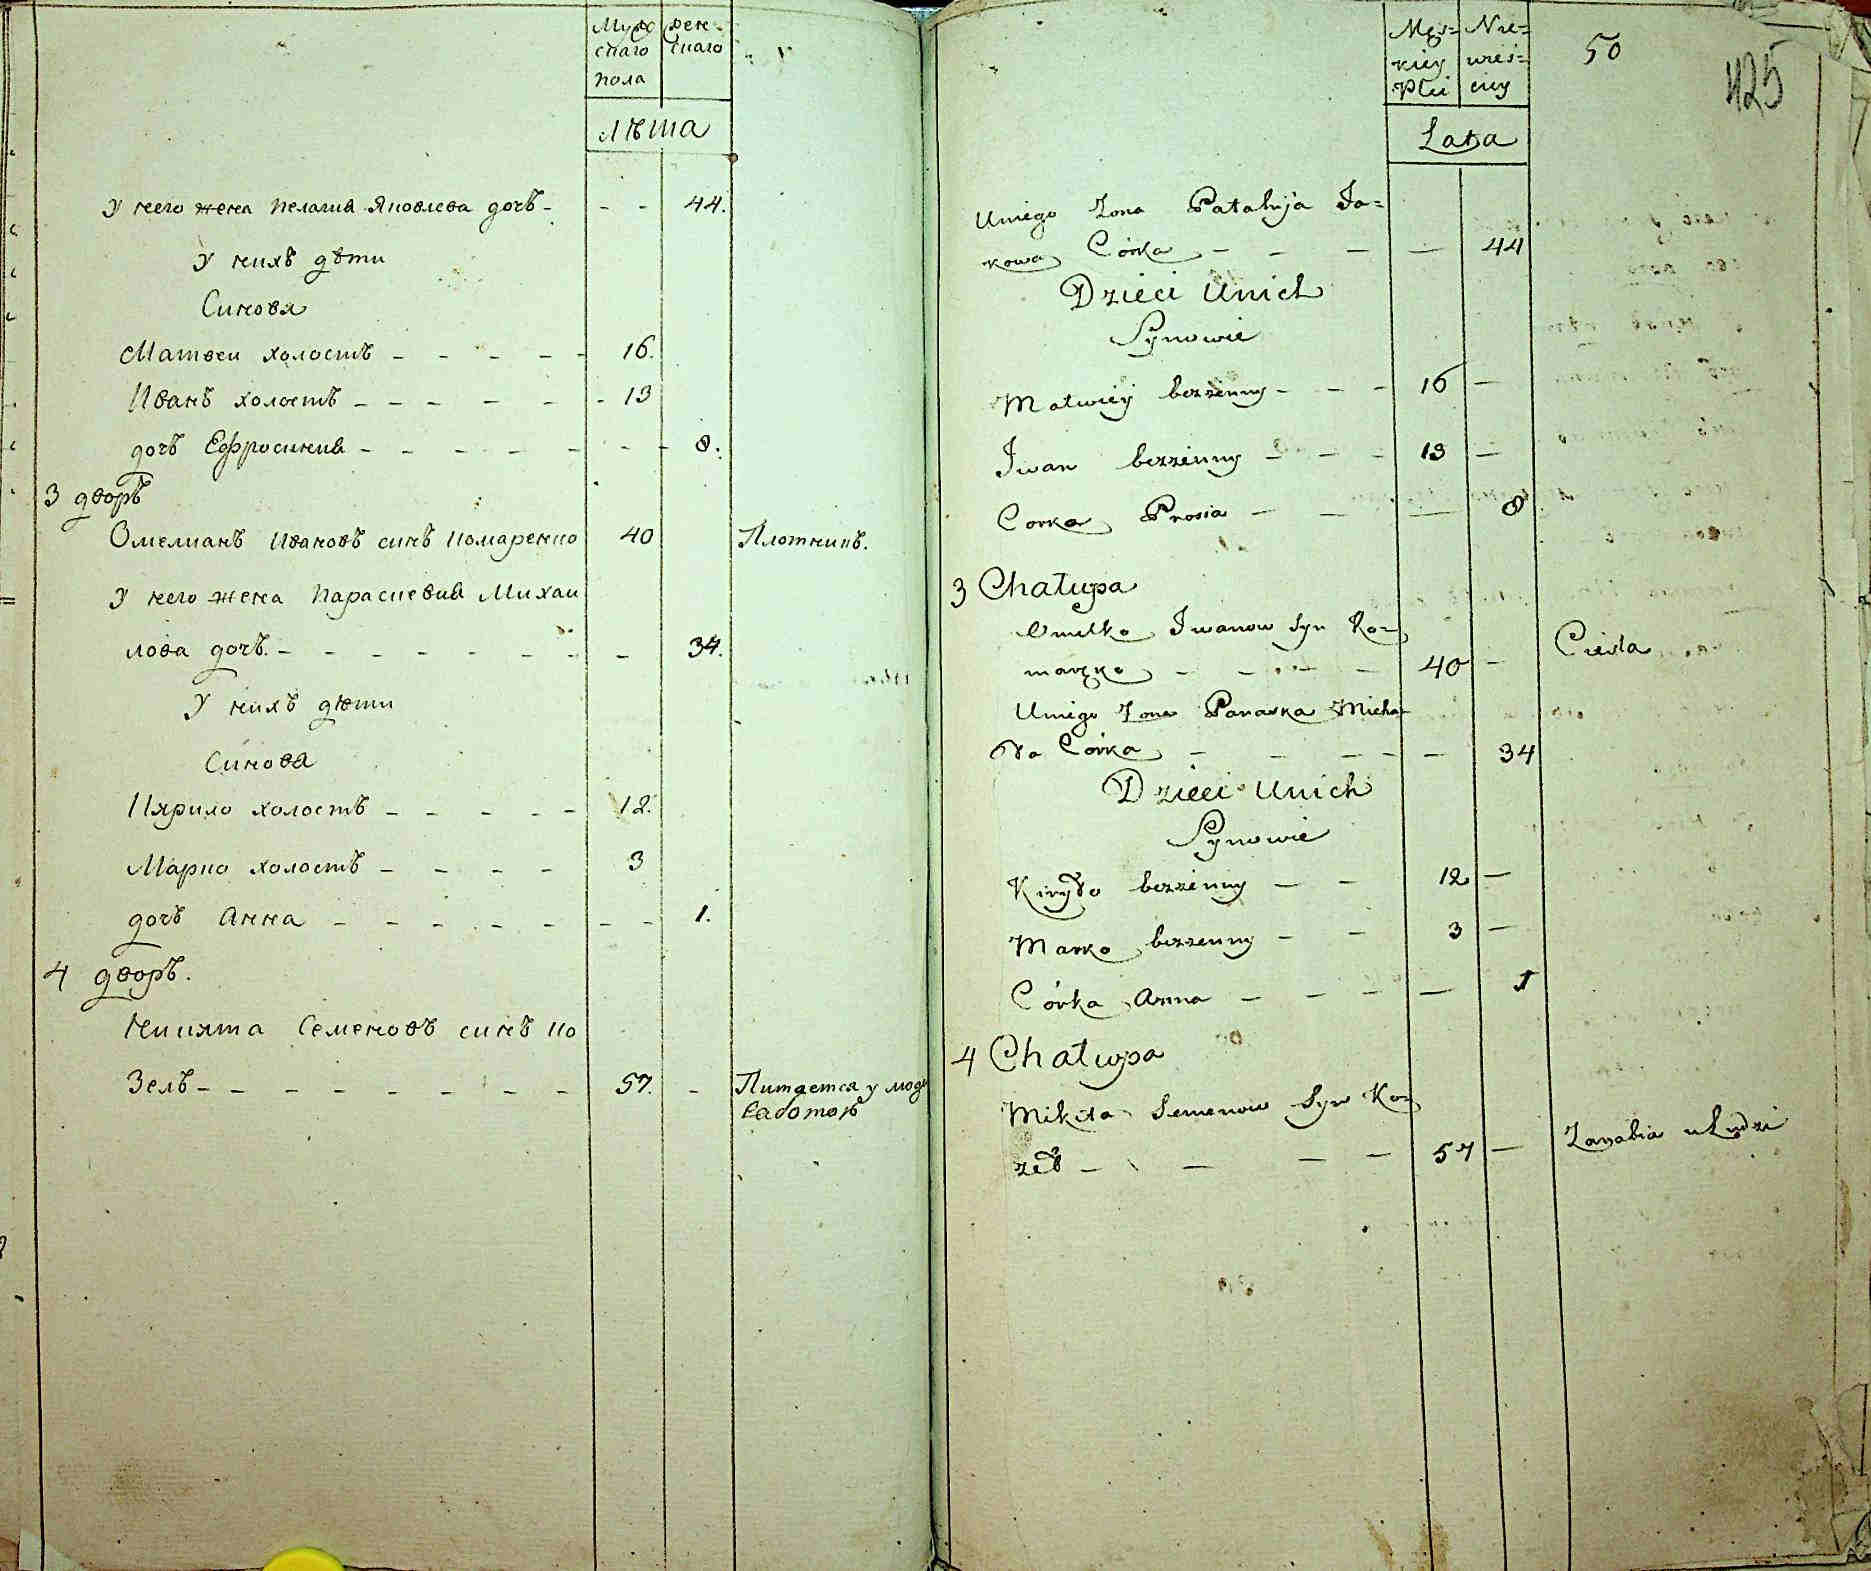 Мужскаго пола
женскаго
лѣта
У него жена Пелагия Яковлева дочь - - - 44.
У нихъ дѣти
Синовя
Матвеи холостъ - - - - - 16.
Иванъ холостъ - - - - - - 13
дочь Ефросиния - - - - - - - 8.
3 дворъ
Омелианъ Ивановъ синъ Комаренко 40 Плотникъ.
У него жена Параскевия Михаи
лова дочь. - - - - - - - - 34.
У нихъ дѣти
Синовя
Кярило холостъ - - - - - 12.
Марко холостъ - - - - 3
дочь Анна - - - - - - - - 1.
4 дворъ.
Никита Семеновъ синъ Ко
зелъ - - - - - - - - 57. - Питается у
работою
Męs=
kiey
Płci
Nie=
wieś=
ciey
Lata
50
425
Uniego Zona Pałahija Ja=
kowa Córka - - - - 44
Dzieci Unich
Synowie
Matwiey bezzenny - - - 16 -
Iwan bezzenny - - - 13 -
Corka Prosia - - - 8
3 Chałupa
Omelko Iwanow Syn Ko-
marzko - - - - 40 - Ciesla
Uniego Zona Paraska Micha-
ła Córka - - - - - 34
Dzieci Unich
Synowie
Kiryło bezzenny - - 12 -
Marko bezzenny - - 3 -
Córka Anna - - - - 1
4 Chałupa
Mikita Semenow Syn Ko-
zeł - - - - 57 - Zarabia u Ludzi